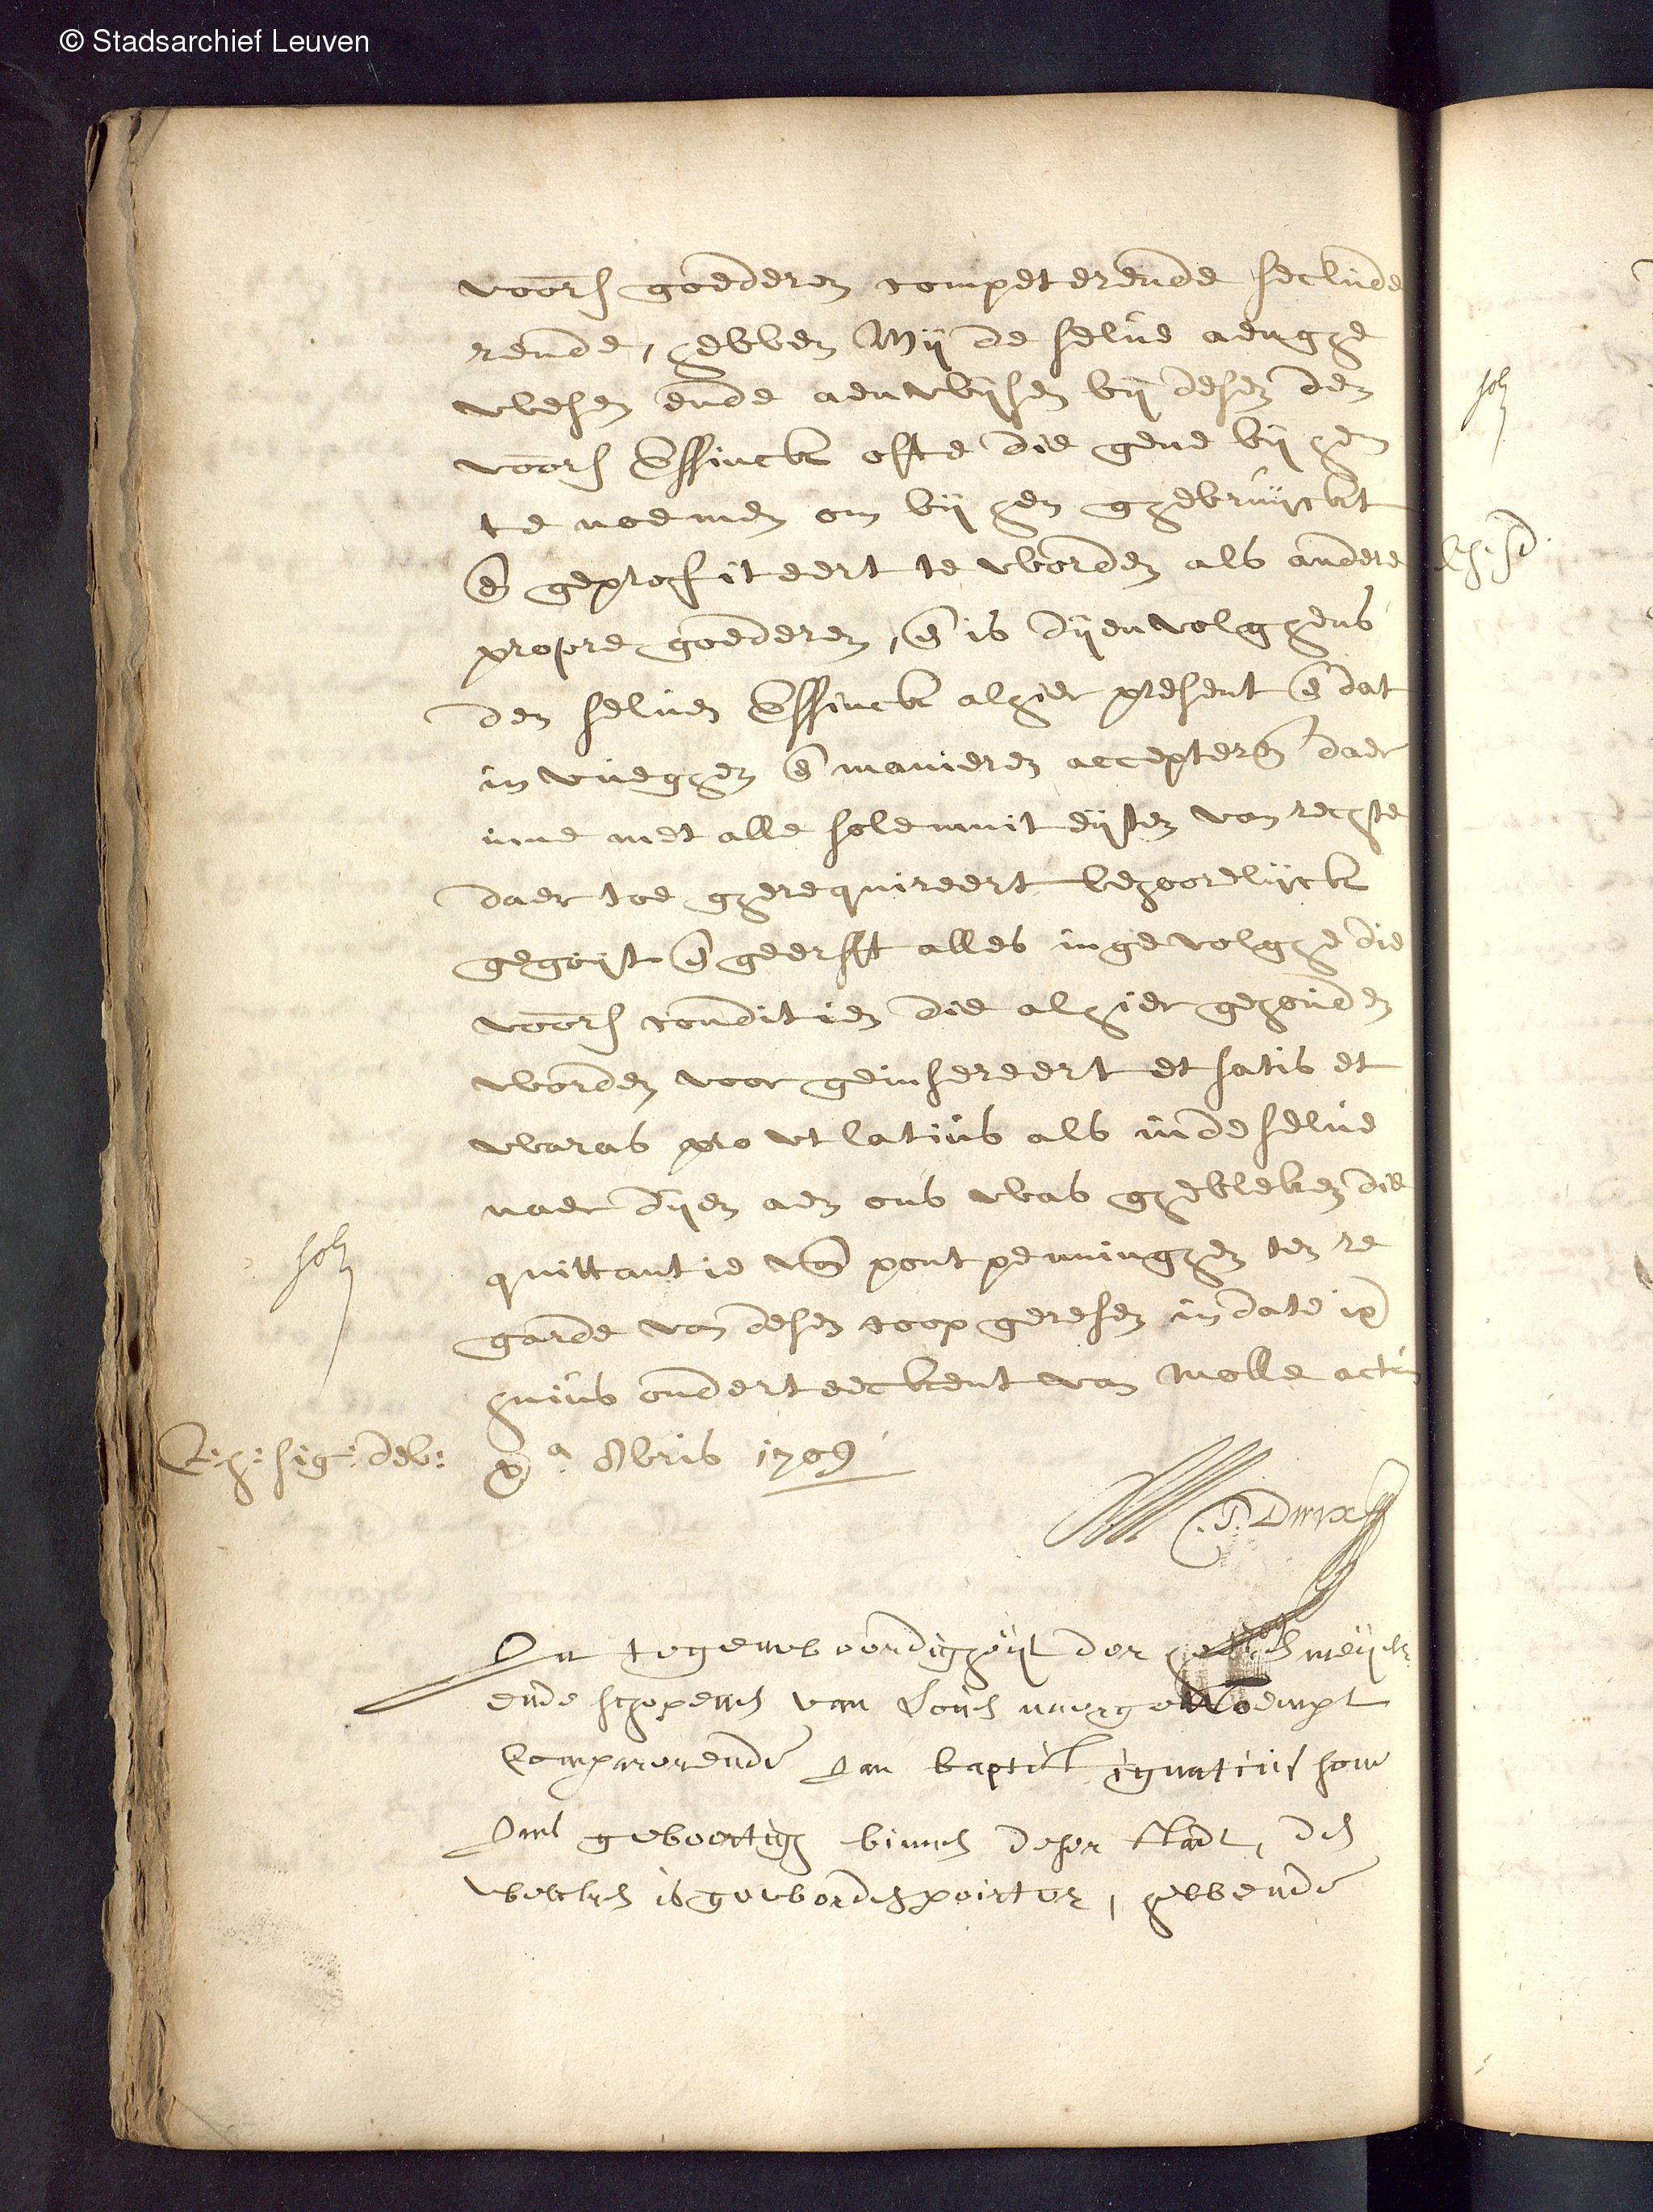 © Stadsarchief Leuven
voors goederen competerende seclude
rende, hebben Wij de selve aenghe
wesen ende aenwijsen bij desen den
voors Essinck ofte die gene bij hem
te noemen om bij hem ghebruijckt
en geprofiteert te worden als andere
propre goederen, en is dijenvolghens
den selven Essinck alhier present en dat
in vueghen en manieren accepteren daer
inne met alle solemniteijten van rechte
daer toe gherequireert behoorelijck
gegoijt en geerfft alles ingevolghe die
voors conditien die alhier gehouden
worden voor geinsereert et satis et
waras prout latius als inde selve
naer dijen aen ons was ghebleken die
quittantie van pontpenninghen ten re
garde van desen coop geresen in date
huius onderteeckent van Molle actum
pa 8bris 1709
solt
sig: deb:
In tegenwoordigheijt der heeren meijer
ende schepenen van Loven naergenoempt
Comparerende Jan baptist ignatius
geboortigh binnen deser stadt, den
welcken is geworden poirter, hebbende
solt